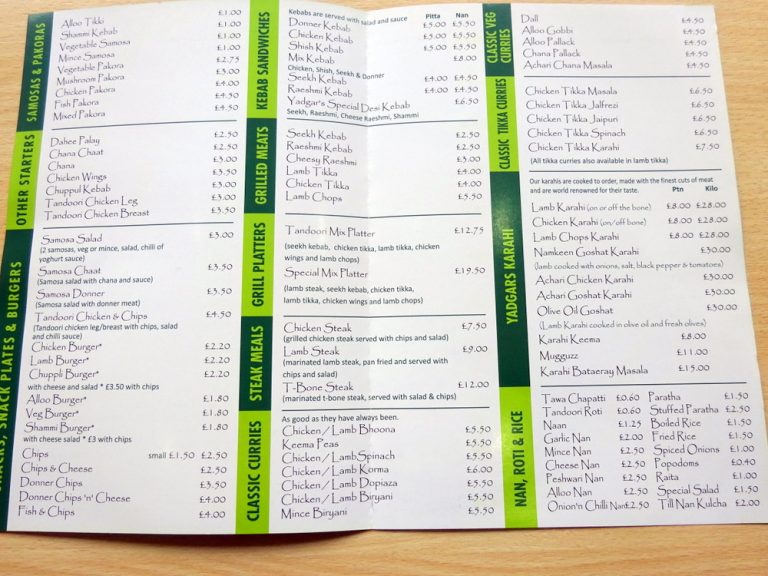 SAMOSAS & PAKORAS
Alloo Tikki £1.00
Shami Kebab £1.00
Vegetable Samosa £1.00
Mince Samosa £1.00
Vegetable Pakora £2.75
Mushroom Pakora £3.00
Chicken Pakora £4.00
Fish Pakora £4.50
Mixed Pakora £4.50
OTHER STARTERS
Dahee Palay £2.50
Chana Chaat £2.50
Chana £3.00
Chicken Wings £3.00
Chuppul Kebab £2.00
Tandoori Chicken Leg £3.00
Tandoori Chicken Breast £3.50
SNACK PLATES & BURGERS
Samosa Salad £3.00
(2 samosas, veg or mince, salad, chilli of
yoghurt sauce)
Samosa Chaat £3.50
(Samosa salad with chana and sauce)
Samosa Donner £3.50
(Samosa salad with donner meat)
Tandoori Chicken & Chips £4.50
(Tandoori chicken leg/breast with chips, salad
and chilli sauce)
Chicken Burger* £2.20
Lamb Burger* £2.20
Chuppli Burger* £2.20
with cheese and salad * £3.50 with chips
Alloo Burger* £1.80
Veg Burger* £1.80
Shammi Burger* £1.80
with cheese salad * £3 with chips
Chips small £1.50 £2.50
Chips & Cheese £2.50
Donner Chips £3.50
Donner Chips 'n' Cheese £4.00
Fish & Chips £4.00
KEBAB SANDWICHES
Kebabs are served with salad and sauce Pitta Nan
Donner Kebab £5.00 £5.50
Chicken Kebab £5.00 £5.50
Shish Kebab £5.00 £5.50
Mix Kebab £8.00
Chicken, Shish, Seekh & Donner
Seekh Kebab £4.00 £4.50
Raeshmi Kebab £4.00 £4.50
Yadgar's Special Desi Kebab £6.50
Seekh, Raeshmi, Cheese Raeshmi, Shammi
GRILLED MEATS
Seekh Kebab £2.50
Raeshmi Kebab £2.50
Cheesy Raeshmi £3.00
Lamb Tikka £4.00
Chicken Tikka £4.00
Lamb Chops £3.50
GRILL PLATTERS
Tandoori Mix Platter £12.75
(seekh kebab, chicken tikka, lamb tikka, chicken
wings and lamb chops)
Special Mix Platter £19.50
(lamb steak, seekh kebab, chicken tikka,
lamb tikka, chicken wings and lamb chops)
STEAK MEALS
Chicken Steak £7.50
(grilled chicken steak served with chips and salad)
Lamb Steak £9.00
(marinated lamb steak, pan fried and served with
chips and salad)
T-Bone Steak £12.00
(marinated t-bone steak, served with salad & chips)
CLASSIC CURRIES
As good as they have always been.
Chicken / Lamb Bhoona £5.50
Keema Peas £5.50
Chicken / LambSpinach £5.50
Chicken / Lamb Korma £6.00
Chicken / Lamb Dopiaza £5.50
Chicken / Lamb Biryani £5.50
Mince Biryani £5.50
CLASSIC VEG CURRIES
Dall £4.50
Alloo Gobbi £4.50
Alloo Pallack £4.50
Chana Pallack £4.50
Achari Chana Masala £4.50
CLASSIC TIKKA CURRIES
Chicken Tikka Masala £6.50
Chicken Tikka Jalfrezi £6.50
Chicken Tikka Jaipuri £6.50
Chicken Tikka Spinach £6.50
Chicken Tikka Karahi £7.50
(All tikka curries also available in lamb tikka)
YADGARS KARAHI
Our karahis are cooked to order, made with the finest cuts of meat
and are world renowned for their taste. Ptn Kilo
Lamb Karahi (on or off the bone) £8.00 £28.00
Chicken Karahi (on/off bone) £8.00 £28.00
Lamb Chops Karahi £8.00 £28.00
Namkeen Goshat Karahi £30.00
(lamb cooked with onions, salt, black pepper & tomatoes)
Achari Chicken Karahi £30.00
Achari Goshat Karahi £30.00
Olive Oil Goshat £30.00
(Lamb Karahi cooked in olive oil and fresh olives)
Karahi Keema £8.00
Mugguzz £11.00
Karahi Bataeray Masala £15.00
NAN, ROTI & RICE
Tawa Chapatti £0.60 Paratha £1.50
Tandoori Roti £0.60 Stuffed Paratha £2.50
Naan £1.25 Boiled Rice £1.50
Garlic Nan £2.00 Fried Rice £1.50
Mince Nan £2.50 Spiced Onions £1.00
Cheese Nan £2.50 Popodoms £0.40
Peshwari Nan £2.50 Raita £1.00
Alloo Nan £2.50 Special Salad £1.50
Onion'n Chilli Nan£2.50 Till Nan Kulcha £2.00